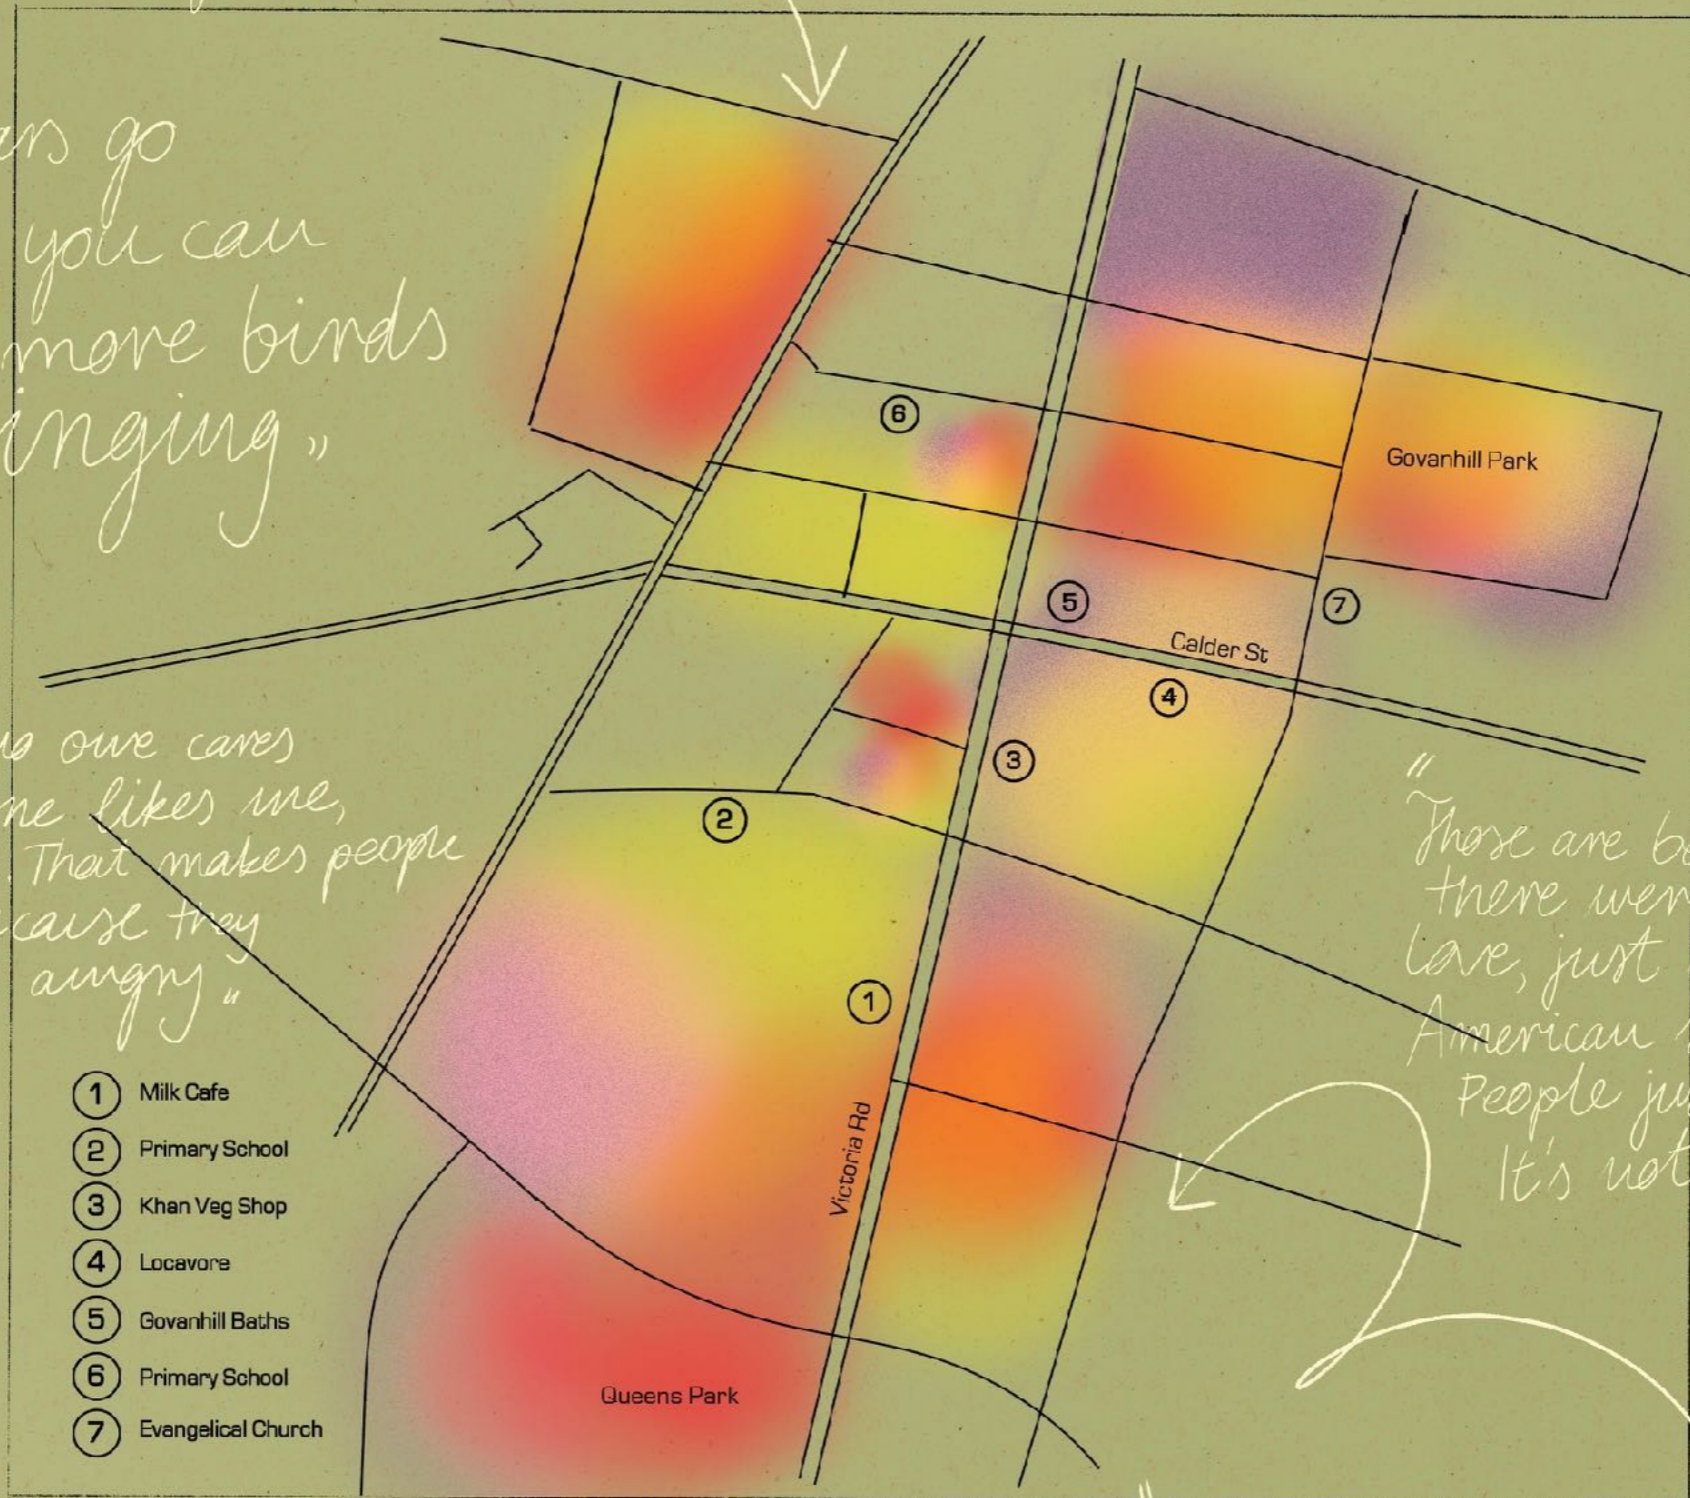 go
you can
more birds
inging„
owe cares
ne likes me,
That makes people
cause they
aungry„
"
Those are
there wer
Love, just
American
People ju
It's not
6
Govanhill Park
5
7
Calder St
4
3
2
1
Victoria Rd
Queens Park
1 Milk Cafe
2 Primary School
3 Khan Veg Shop
4 Locavore
5 Govanhill Baths
6 Primary School
7 Evangelical Church